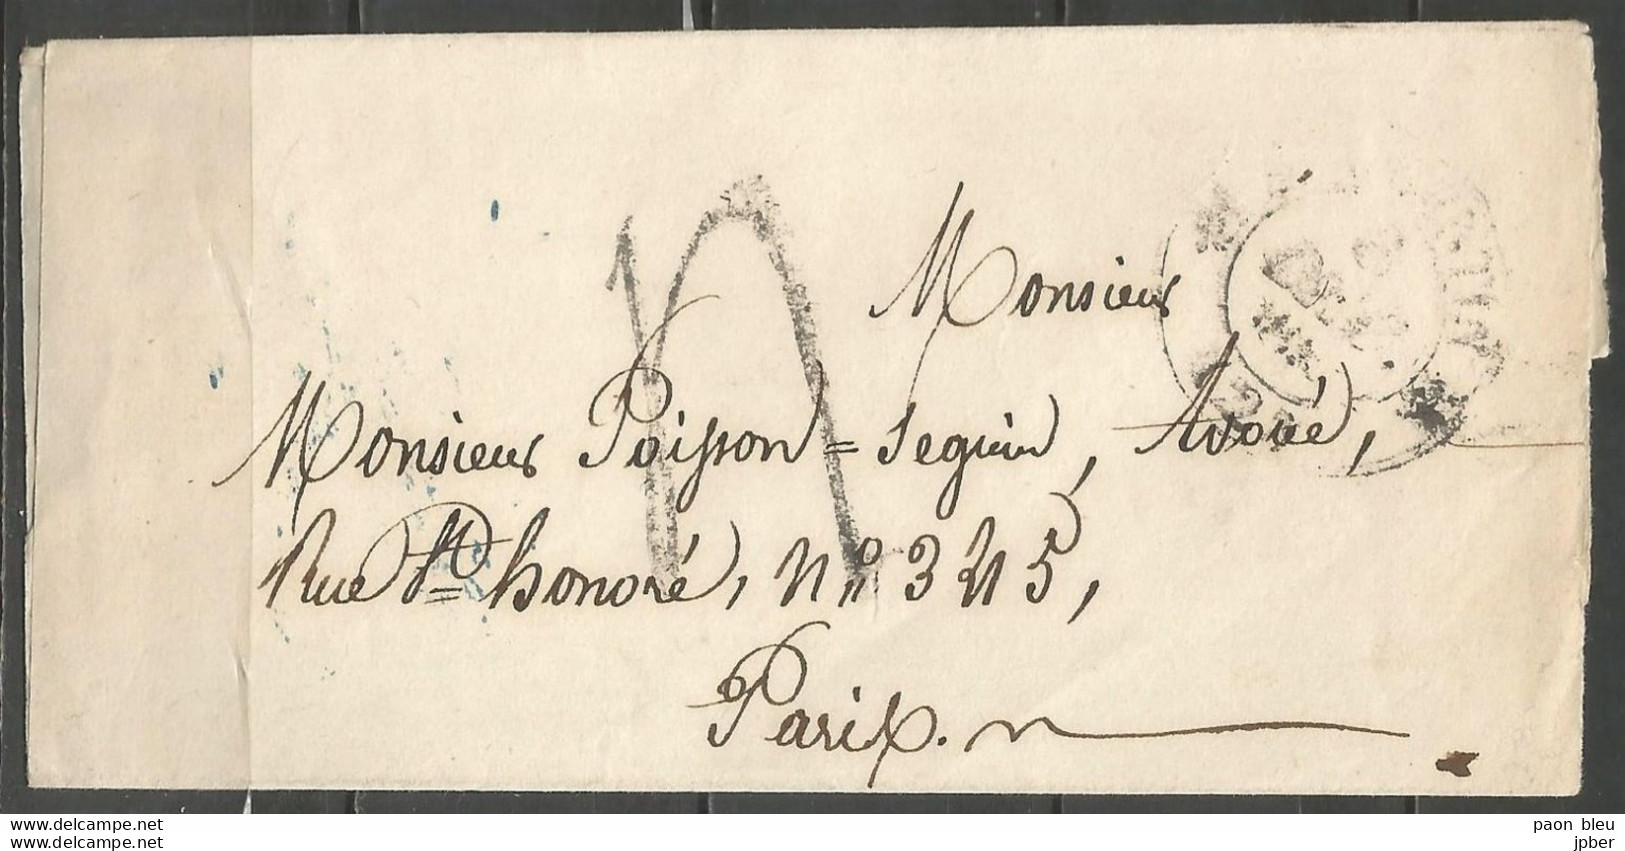 Monsieur
Monsieur Poisson = Seguin, Avoué,
Rue St. honoré, n.° 345,
Paris.
www.delcampe.net
www.delcampe.net
paon bleu
jpber